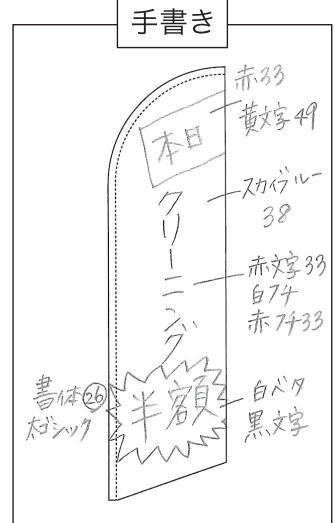 手書き
赤33
黄文字49
本日
スカイブルー
38
クリーニング
赤文字33
白フチ
赤フチ33
半額
書体㉖
太ゴシック
白ベタ
黒文字